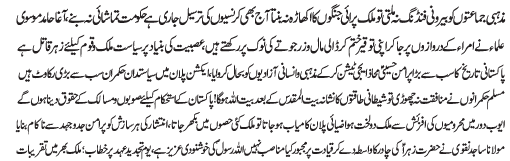 مذہبی جماعتوں کو بیرونی فنڈنگ نہ ملتی تو ملک پرائی جنگوں کا اکھاڑہ نہ بنتا آج بھی کرنسیوں کی ترسیل جاری ہے حکومت تماشائی نہ بنے، آغا حامد موسوی
علماء نے امراء کے دروازوں پر جا کر اپنی توقیر ختم کر ڈالی مال و زر جوتے کی نوک پر رکھتے ہیں، عصبیت کی بنیاد پر سیاست ملک و قوم کیلئے زہر قاتل ہے
پاکستانی تاریخ کا سب سے بڑا پرامن حسینی محاذ ایجی ٹیشن کر کے مذہبی و انسانی آزادیوں کو بحال کروایا، ایکشن پلان میں سیاستدان حکمران سب سے بڑی رکاوٹ ہیں
مسلم حکمرانوں نے منافقت نہ چھوڑی تو شیطانی طاقتوں کا نشانہ بیت المقدس کے بعد بیت اللہ ہو گا! پاکستان کے استحکام کیلئے صوبوں و مسالک کے حقوق دینا ہوں گے
ایوب دور میں محرومیوں کی افزائش سے ملک دولخت ہوا ضیائی پلان کامیاب ہو جاتا تو ملک کئی حصوں میں بکھر جاتا، انتشار کی ہر سازش کو پرامن جدوجہد سے ناکام بنایا
مولانا ساجد نقوی نے حضرت زہراؑ کی چادر کا واسطہ دے کر قیادت پر مجبور کیا مناصب نہیں اللہ رسولؐ کی خوشنودی عزیز ہے، یوم تجدید عہد پر خطاب؛ ملک بھر میں تقریبات